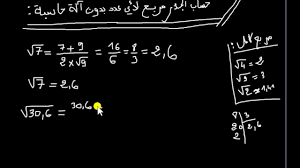 حساب الجدر مربع لأي عدد بدون آلة حاسبة :
√7 = 7+9 / 2×√9 = 16/6 = 8/3 = 2,6
√7 = 2,6
√30,6 = 30,6
مربع كامل :
√4 = 2
√9 = 3
8 3
20 2,6
2